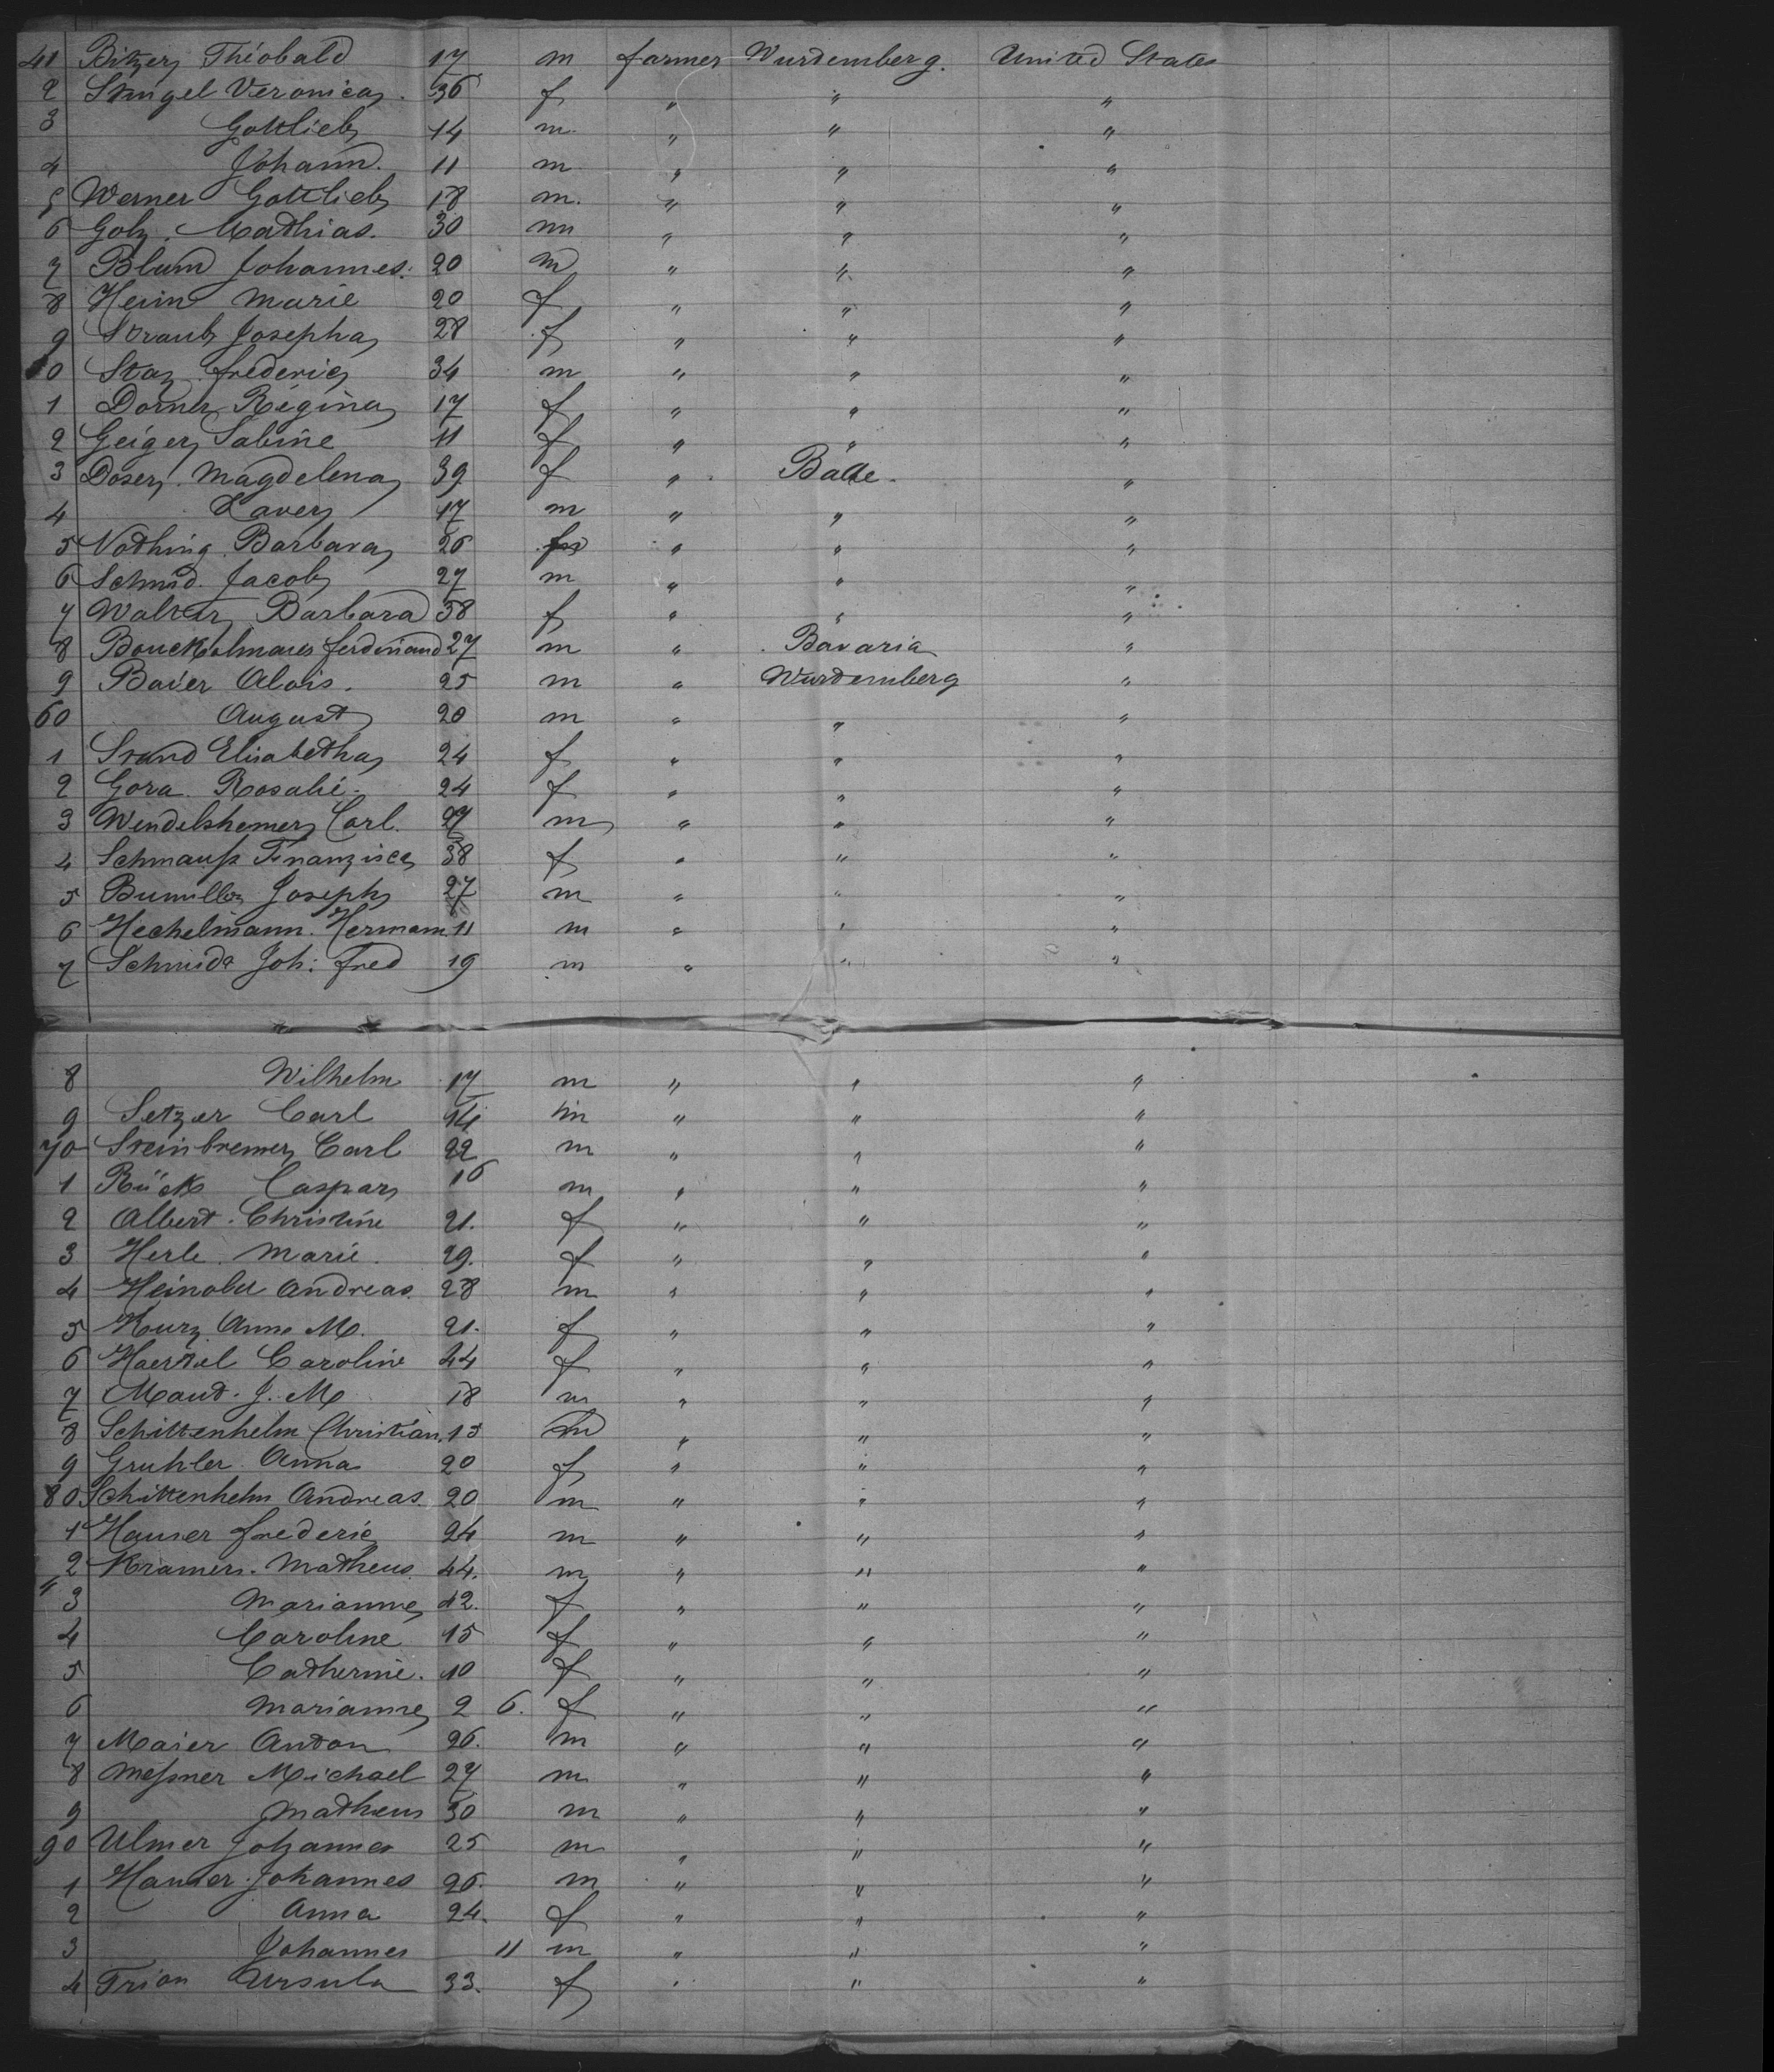 41 Bitzer Théobald 17 m farmer Wurdemberg. United States
2 Stengel Veronica 36 f " " "
3 Gottlieb 14 m " " "
4 Johann. 11 m " " "
5 Werner Gottlieb 18 m. " " "
6 Golz. Mathias. 30 m " " "
7 Blum Johannes. 20 m " " "
8 Heim Marie 20 f " " "
9 Straub Josepha 28 f " " "
50 Staz frederic 34 m " " "
1 Dorner Régina 17 f " " "
2 Geiger Sabine 11 f " " "
3 Doser Magdelena 39 f " Bade. "
4 Xaver 17 m " " "
5 Nothing Barbara 26 f " " "
6 Schmid. Jacob 27 m " " "
7 Walter Barbara 58 f " " "
8 ferdinand 27 m " Bavaria "
9 Bauer Alois. 25 m " Wurdemberg "
60 August 20 m " " "
1 Strand Elisabetha 24 f " " "
2 Gora Rosalie 24 f " " "
3 Wendelshemer Carl. 27 m " " "
4 Schmauß Franzisca 38 f " " "
5 Bumiller Joseph 27 m " " "
6 Hechelmann. Hermann 11 m " " "
7 Schmidt Joh: fred 19 m " " "
8 Wilhelm 17 m " " "
9 Setzer Carl 14 m " " "
70 Steinbremer Carl 22 m " " "
1 Rück Caspar 16 m " " "
2 Albert. Christine 21. f " " "
3 Herle. Marie. 29. f " " "
4 Andreas. 28 m " " "
5 Kurz Anna M. 21. f " " "
6 Haertel Caroline 44 f " " "
7 Maud. J. M 18 m " " "
8 Schittenhelm Christian. 15 m " " "
9 Gruhler Anna 20 f " " "
80 Schittenhelm Andreas. 20 m " " "
1 Hauser frederic 24 m " " "
2 Kramer. Matheus. 44. m " " "
" 3 Marianne 42. f " " "
4 Caroline 15 f " " "
5 Catherine. 10 f " " "
6 Marianne 2 6. f " " "
7 Maier Anton 26. m " " "
8 Meßner Michael 27 m " " "
9 Matheus 30 m " " "
90 Ulmer Johannes 25 m " " "
1 Hauser Johannes 26. m " " "
2 Anna 24. f " " "
3 Johannes 11 m " " "
4 Trion Ursula 33. f " " "